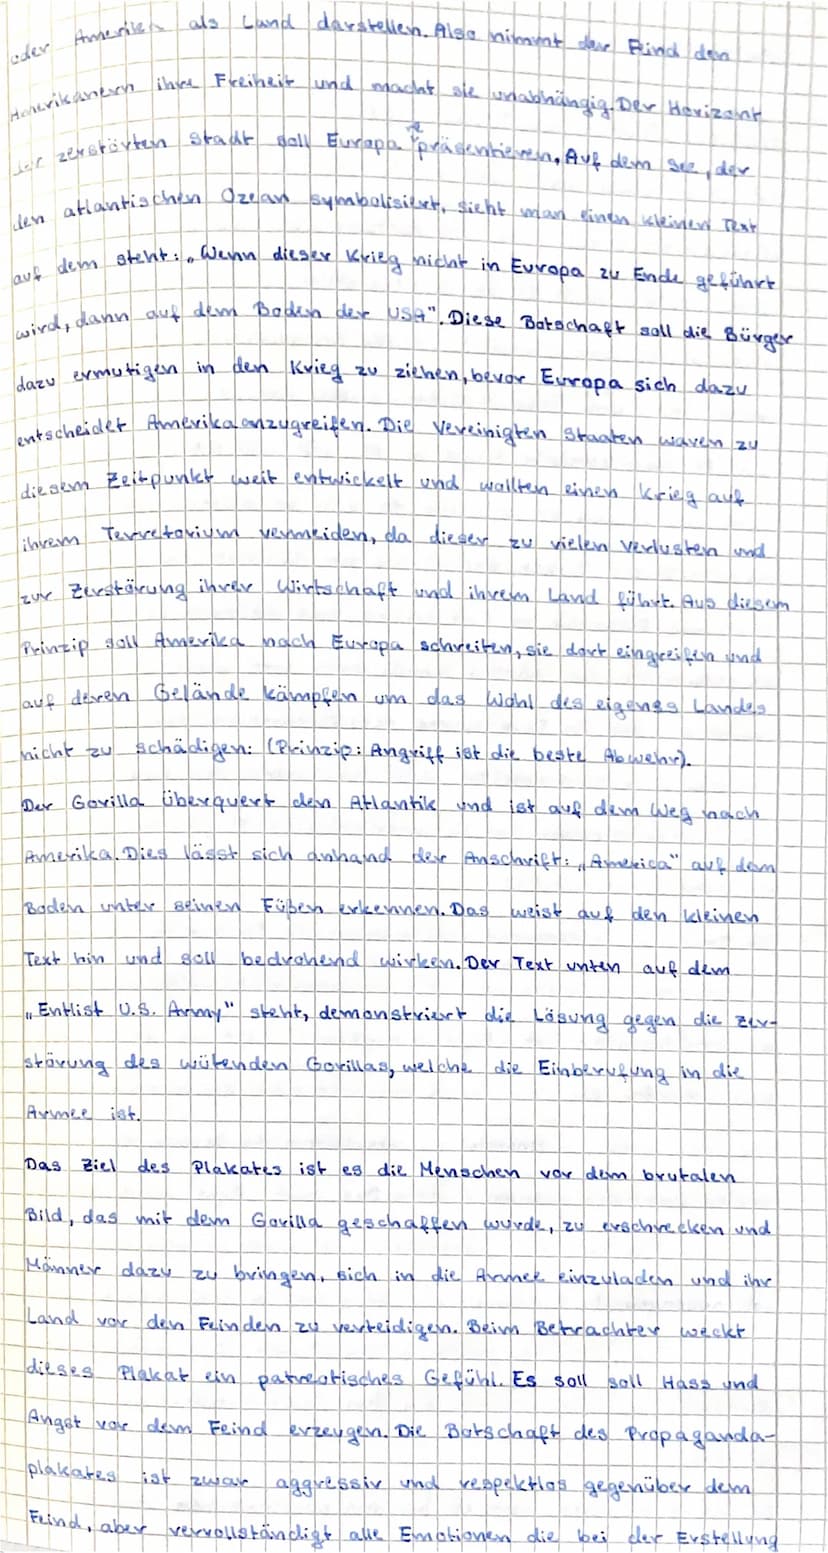 oder Amerika als Land darstellen. Also nimmt der Feind den
Amerikanern ihre Freiheit und macht sie unabhängig. Der Horizont
der zerstörten Stadt soll Europa repräsentieren. Auf dem See, der
den atlantischen Ozean symbolisiert, sieht man einen kleinen Text
auf dem steht: „Wenn dieser Krieg nicht in Europa zu Ende geführt
wird, dann auf dem Boden der USA". Diese Botschaft soll die Bürger
dazu ermutigen in den Krieg zu ziehen, bevor Europa sich dazu
entscheidet Amerika anzugreifen. Die Vereinigten Staaten waren zu
diesem Zeitpunkt weit entwickelt und wollten einen Krieg auf
ihrem Terretorium vermeiden, da dieser zu vielen Verlusten und
zur Zerstörung ihrer Wirtschaft und ihrem Land führt. Aus diesem
Prinzip soll Amerika nach Europa schreiten, sie dort eingreifen und
auf deren Gelände kämpfen um das Wohl des eigenes Landes
nicht zu schädigen. (Prinzip: Angriff ist die beste Abwehr).
Der Gorilla überquert den Atlantik und ist auf dem Weg nach
Amerika. Dies lässt sich anhand der Anschrift: „America" auf dem
Boden unter seinen Füßen erkennen. Das weist auf den kleinen
Text hin und soll bedrohend wirken. Der Text unten auf dem
„Entlist U.S. Army" steht, demonstriert die Lösung gegen die Zer-
störung des wütenden Gorillas, welche die Einberufung in die
Armee ist.
Das Ziel des Plakates ist es die Menschen vor dem brutalen
Bild, das mit dem Gorilla geschaffen wurde, zu erschrecken und
Männer dazu zu bringen, sich in die Armee einzuladen und ihr
Land vor den Feinden zu verteidigen. Beim Betrachter weckt
dieses Plakat ein patreotisches Gefühl. Es soll soll Hass und
Angst vor dem Feind erzeugen. Die Botschaft des Propaganda-
plakates ist zwar aggressiv und respektlos gegenüber dem
Feind, aber vervollständigt alle Emotionen die bei der Erstellung